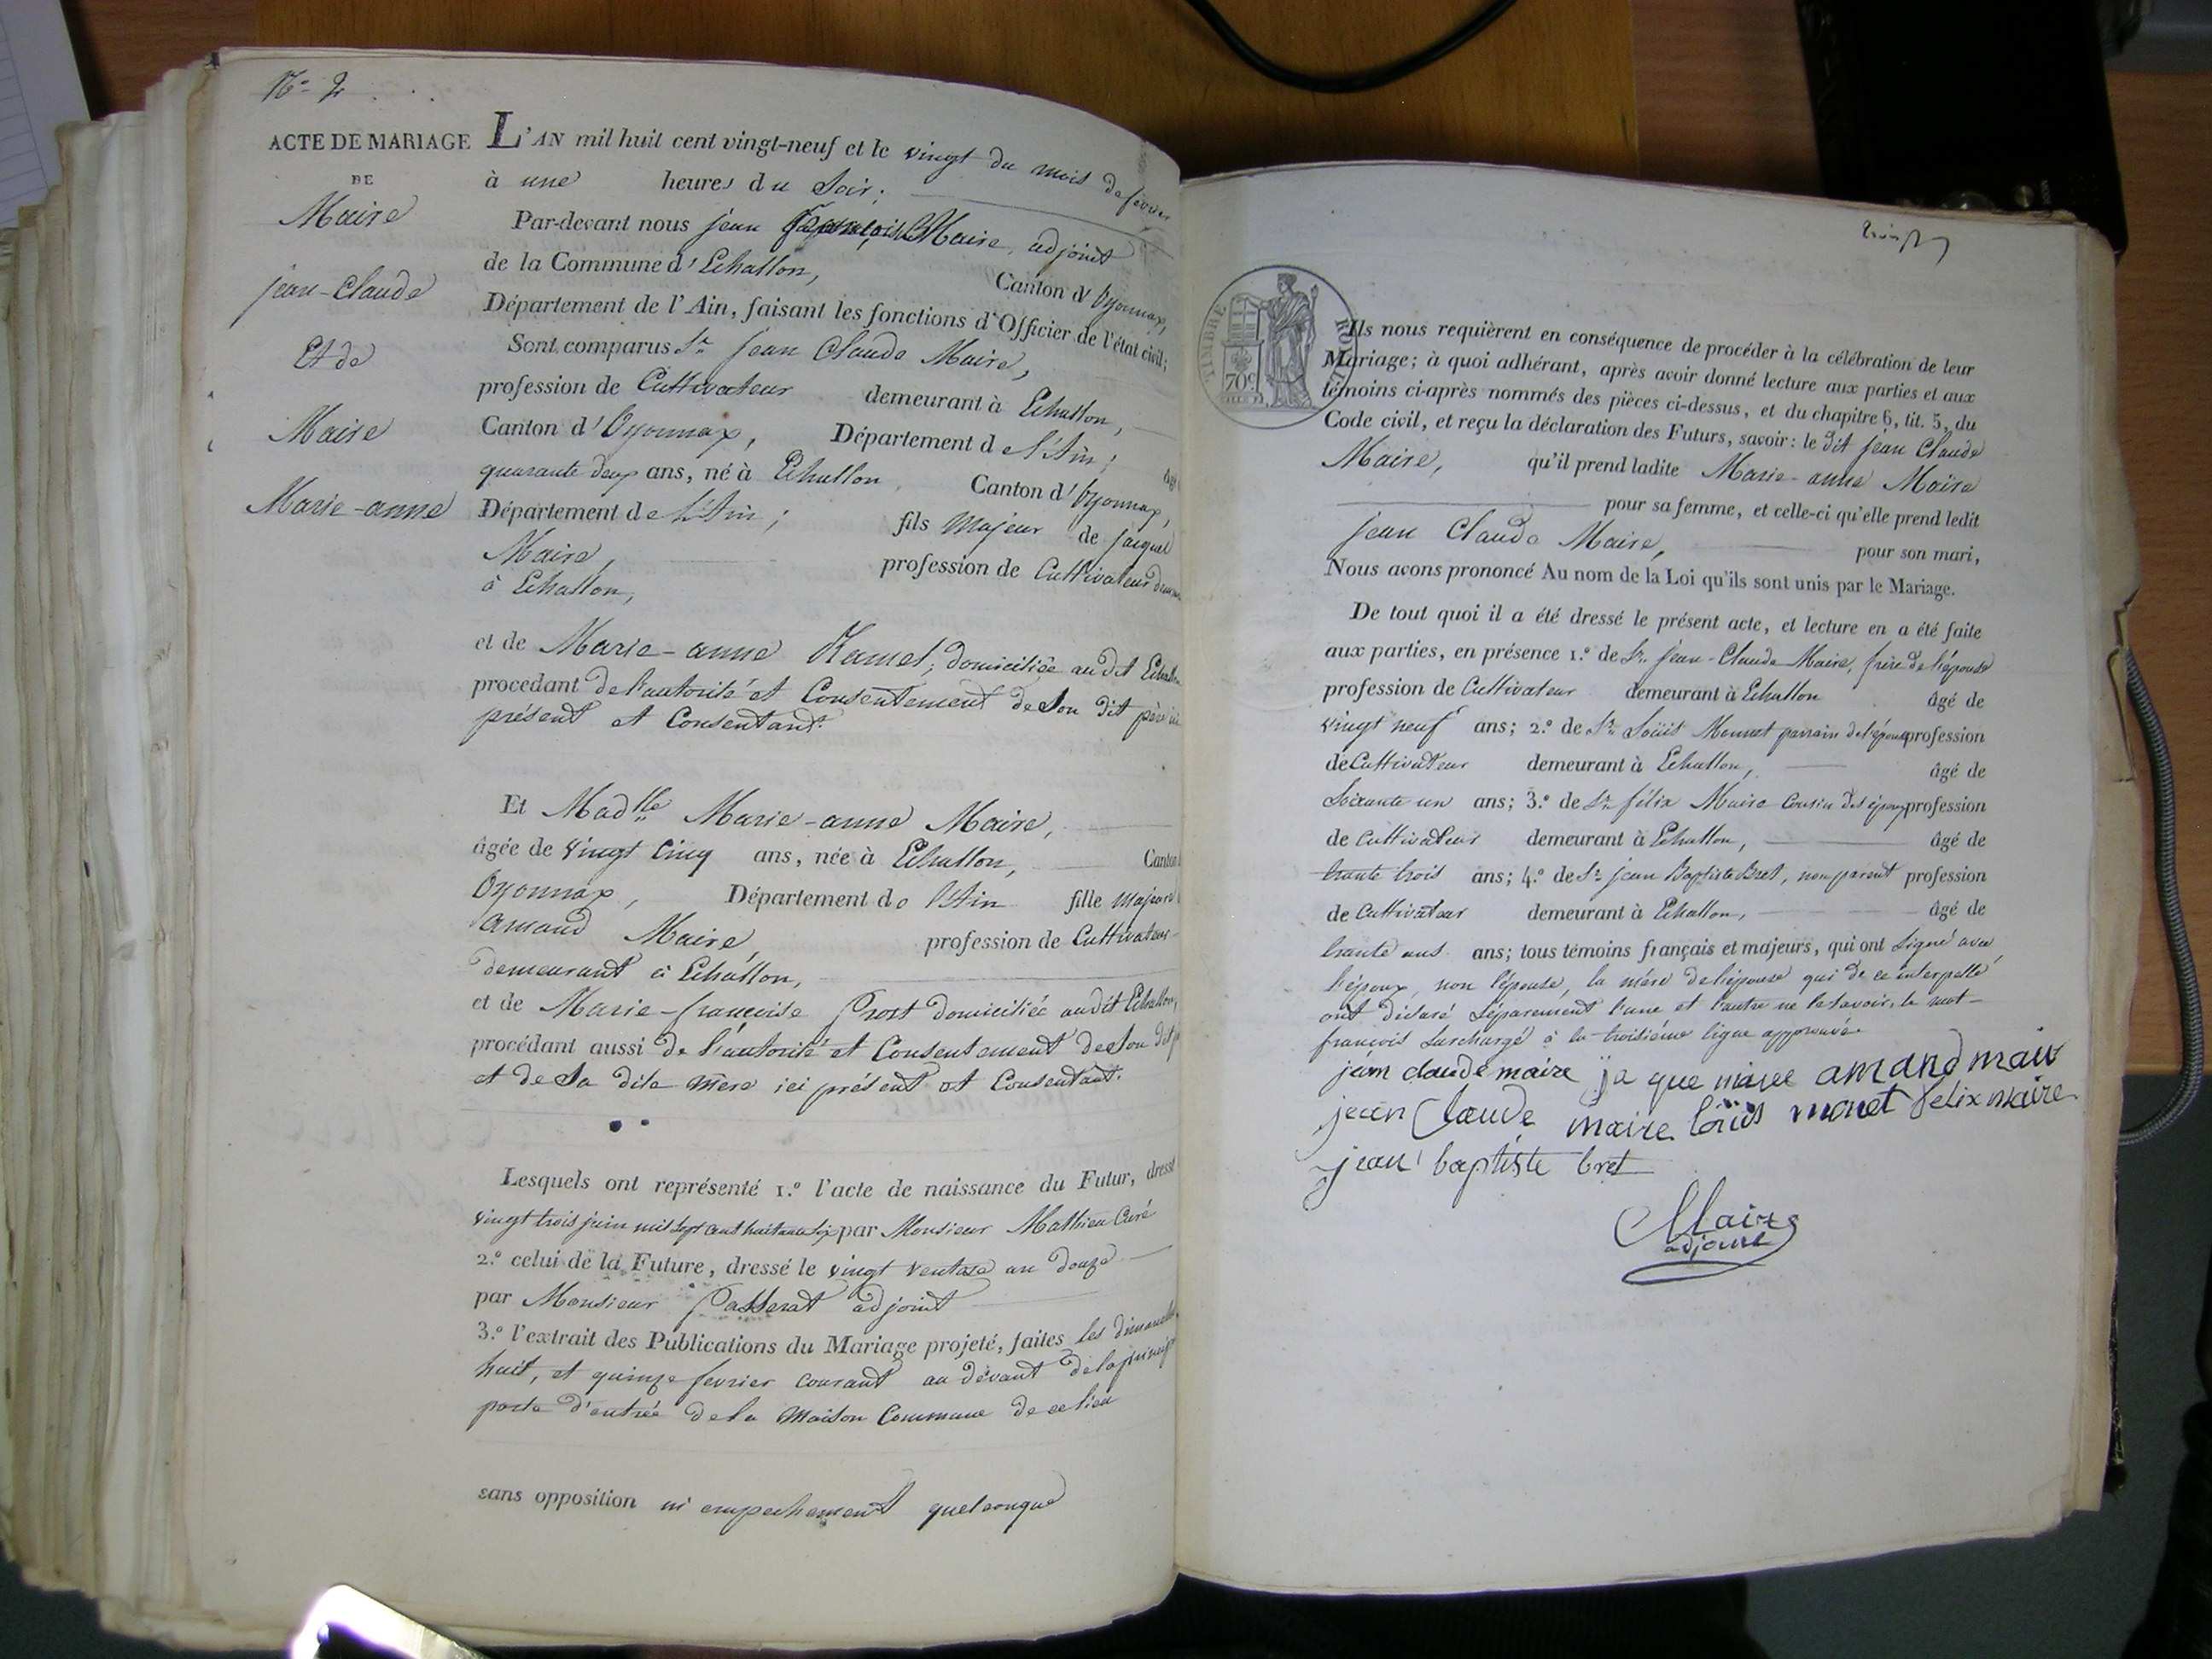 N.º 2
ACTE DE MARIAGE
DE
Maire
jean-Claude
Et de
Maire
Marie-anne
L'AN mil huit cent vingt-neuf et le vingt du mois de fevrier
à une heures du Soir;
Par-devant nous jean françois Maire, adjoint
de la Commune d'Echallon, Canton d'Oyonnax,
Département de l'Ain, faisant les fonctions d'Officier de l'état civil;
Sont comparus Sr. jean Claude Maire,
profession de Cultivateur demeurant à Echallon,
Canton d'Oyonnax, Département de l'Ain; âgé
quarante deux ans, né à Echallon, Canton d'Oyonnax,
Département de l'Ain; fils Majeur de jacques
Maire, profession de Cultivateur
à Echallon,
et de Marie-anne Hamel, domiciliée audit Echallon
procedant de l'autorité et Consentement de Son dit père ici
présent et Consentant.
Et Madlle Marie-anne Maire,
âgée de vingt cinq ans, née à Echallon, Canton
Oyonnax, Département de l'Ain fille majeure
amand Maire, profession de Cultivateur
demeurant à Echallon,
et de Marie-françoise Prost domiciliée audit Echallon,
procédant aussi de l'autorité et Consentement de Son dit
et de Sa dite mère ici présent et Consentant.
Lesquels ont représenté 1.º l'acte de naissance du Futur, dressé
vingt trois juin mil Sept cent huitante Six par Monsieur Mathieu Curé
2.º celui de la Future, dressé le vingt ventose an douze
par Monsieur Passerat adjoint
3.º l'extrait des Publications du Mariage projeté, faites les dimanches
huit, et quinze fevrier courant au devant de la principale
porte d'entrée de la Maison Commune de ce lieu
sans opposition ni empechement quelconque
TIMBRE ROYAL
70c
Ils nous requièrent en conséquence de procéder à la célébration de leur
Mariage; à quoi adhérant, après avoir donné lecture aux parties et aux
témoins ci-après nommés des pièces ci-dessus, et du chapitre 6, tit. 5, du
Code civil, et reçu la déclaration des Futurs, savoir: le dit jean Claude
Maire, qu'il prend ladite Marie-anne Maire
pour sa femme, et celle-ci qu'elle prend ledit
jean Claude Maire, pour son mari,
Nous avons prononcé Au nom de la Loi qu'ils sont unis par le Mariage.
De tout quoi il a été dressé le présent acte, et lecture en a été faite
aux parties, en présence 1.º de Sr. jean-Claude Maire, frère de l'épouse
profession de Cultivateur demeurant à Echallon âgé de
vingt neuf ans; 2.º de Sr. Loüis Monnet parrain de l'épouse profession
de Cultivateur demeurant à Echallon, âgé de
Soixante un ans; 3.º de Sr. félix Maire Cousin des époux profession
de Cultivateur demeurant à Echallon, âgé de
trante trois ans; 4.º de Sr. jean Baptiste Bret, non parent profession
de Cultivateur demeurant à Echallon, âgé de
trante ans ans; tous témoins français et majeurs, qui ont Signé avec
l'époux, non l'épouse, la mère de l'épouse qui de ce interpellé
ont déclaré Séparement l'une et l'autre ne le Savoir, le mot-
françois Surchargé à la troisième ligne approuvé.
jean claude maire ja que maire amand mair
jean Claude maire loüis monet felix maire
jean baptiste bret
Maire
adjoint